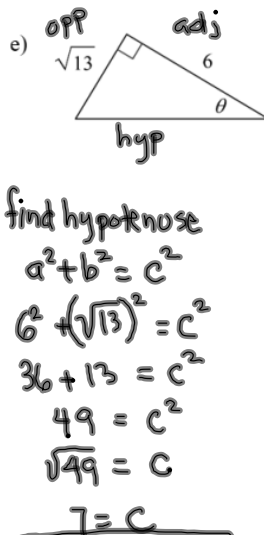 opp adj
e) √13 6
θ
hyp
find hypotenuse
a² + b² = c²
6² + (√13)² = c²
36 + 13 = c²
49 = c²
√49 = c
7 = c